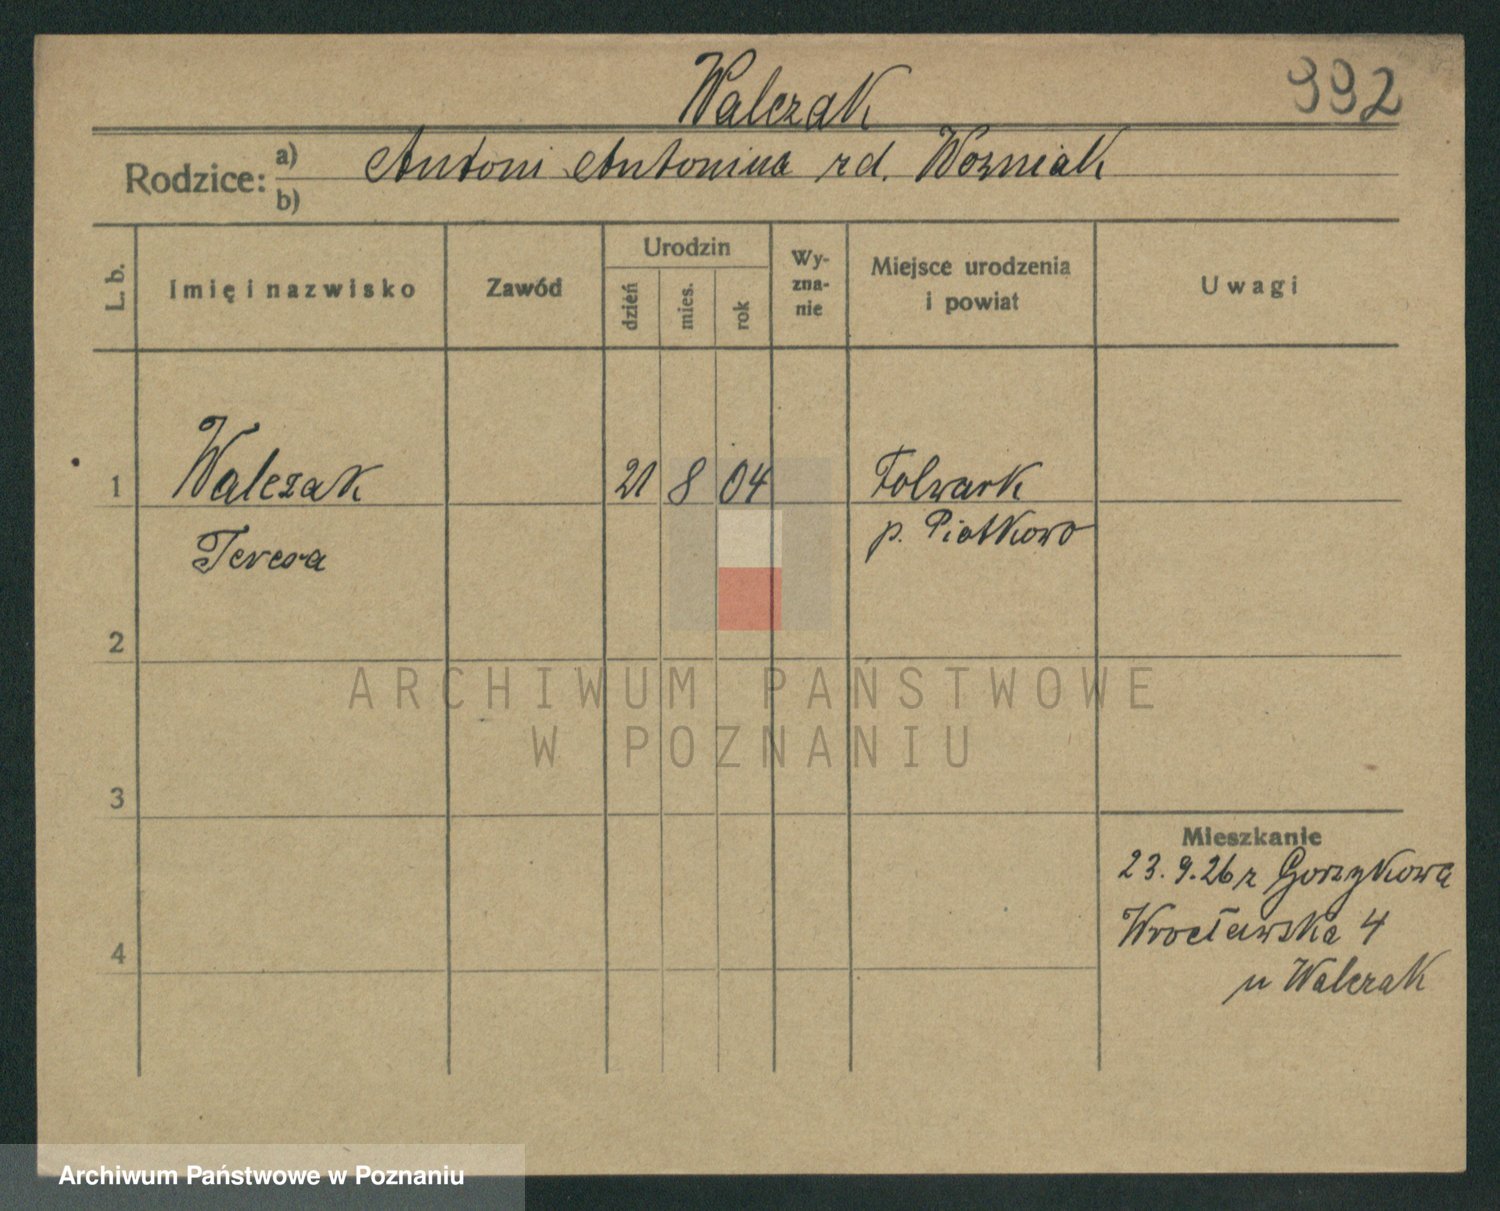 Walczak
992
Rodzice: a) Antoni Antonina rd. Wozniak
b)
L. b.
Imię i nazwisko
Zawód
Urodzin
dzień
mies.
rok
Wy-
zna-
nie
Miejsce urodzenia
i powiat
Uwagi
1 Walczak 21 8 04 Folwark
Teresa p. Piotkowo
2
3
4
Mieszkanie
23.9.26 z Gorzykowa
Wrocławska 4
u Walczak
ARCHIWUM PAŃSTWOWE
W POZNANIU
Archiwum Państwowe w Poznaniu